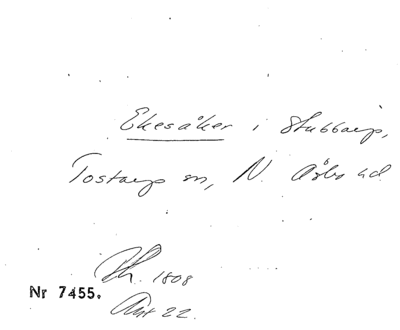 Ekesåker i Stubbarp,
Tostarp sn, N. Åsbo hd
1808
Nr 7455.
Akt 22.